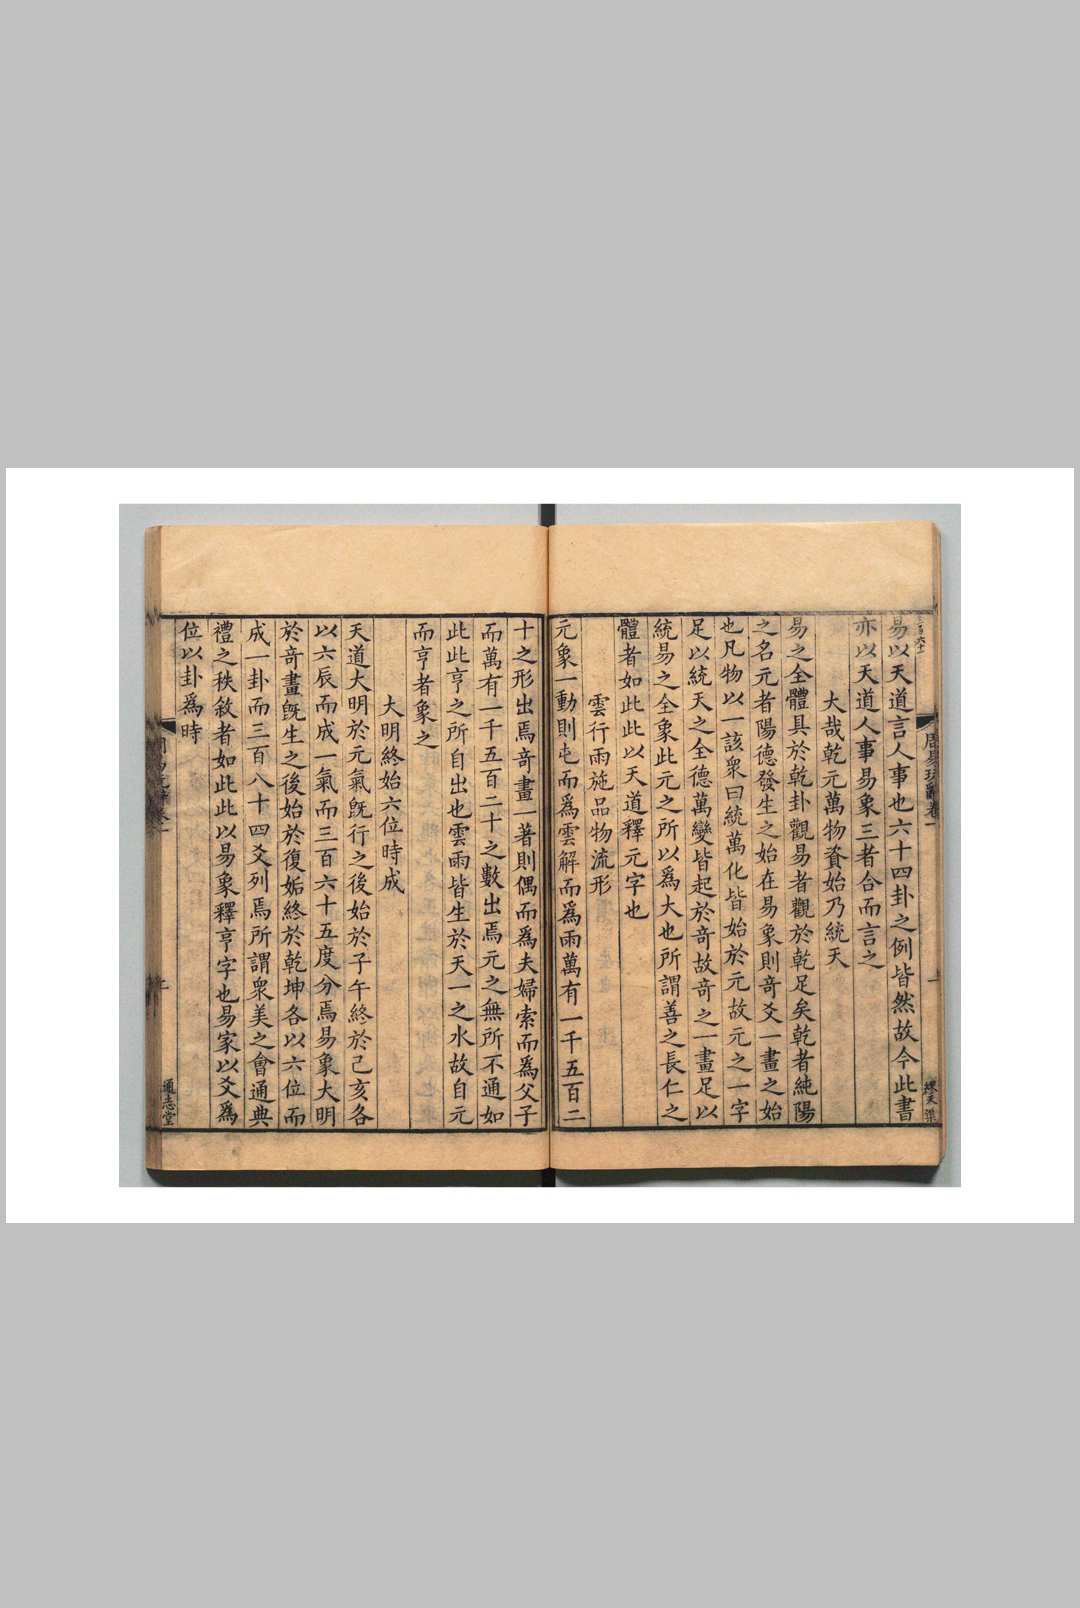 易以天道言人事也六十四卦之例皆然故今此書
亦以天道人事易象三者合而言之
大哉乾元萬物資始乃統天
易之全體具於乾卦觀易者觀於乾足矣乾者純陽
之名元者陽德發生之始在易象則奇爻一畫之始
也凡物以一該衆曰統萬化皆始於元故元之一字
足以統天之全德萬變皆起於奇故奇之一畫足以
統易之全象此元之所以爲大也所謂善之長仁之
體者如此此以天道釋元字也
雲行雨施品物流形
元象一動則屯而爲雲解而爲雨萬有一千五百二
十之形出焉奇畫一著則偶而爲夫婦索而爲父子
而萬有一千五百二十之數出焉元之無所不通如
此此亨之所自出也雲雨皆生於天一之水故自元
而亨者象之
大明終始六位時成
天道大明於元氣旣行之後始於子午終於己亥各
以六辰而成一氣而三百六十五度分焉易象大明
於奇畫旣生之後始於復姤終於乾坤各以六位而
成一卦而三百八十四爻列焉所謂衆美之會通典
禮之秩敘者如此此以易象釋亨字也易家以爻爲
位以卦爲時
周易玩辭卷一
通志堂